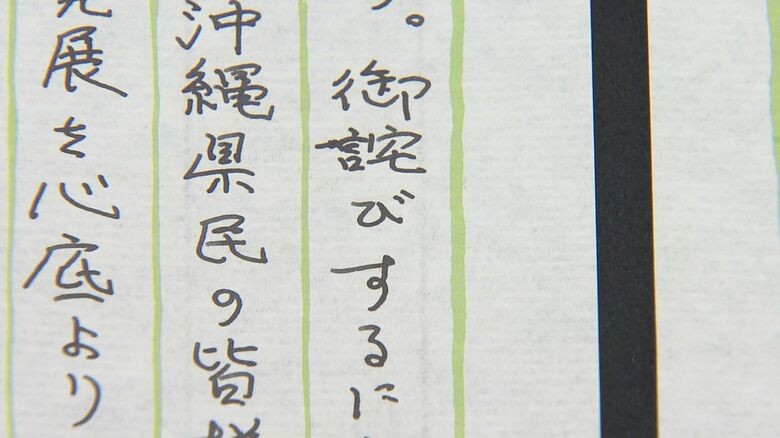 。御詫びするに
沖縄県民の皆様
展を心底より